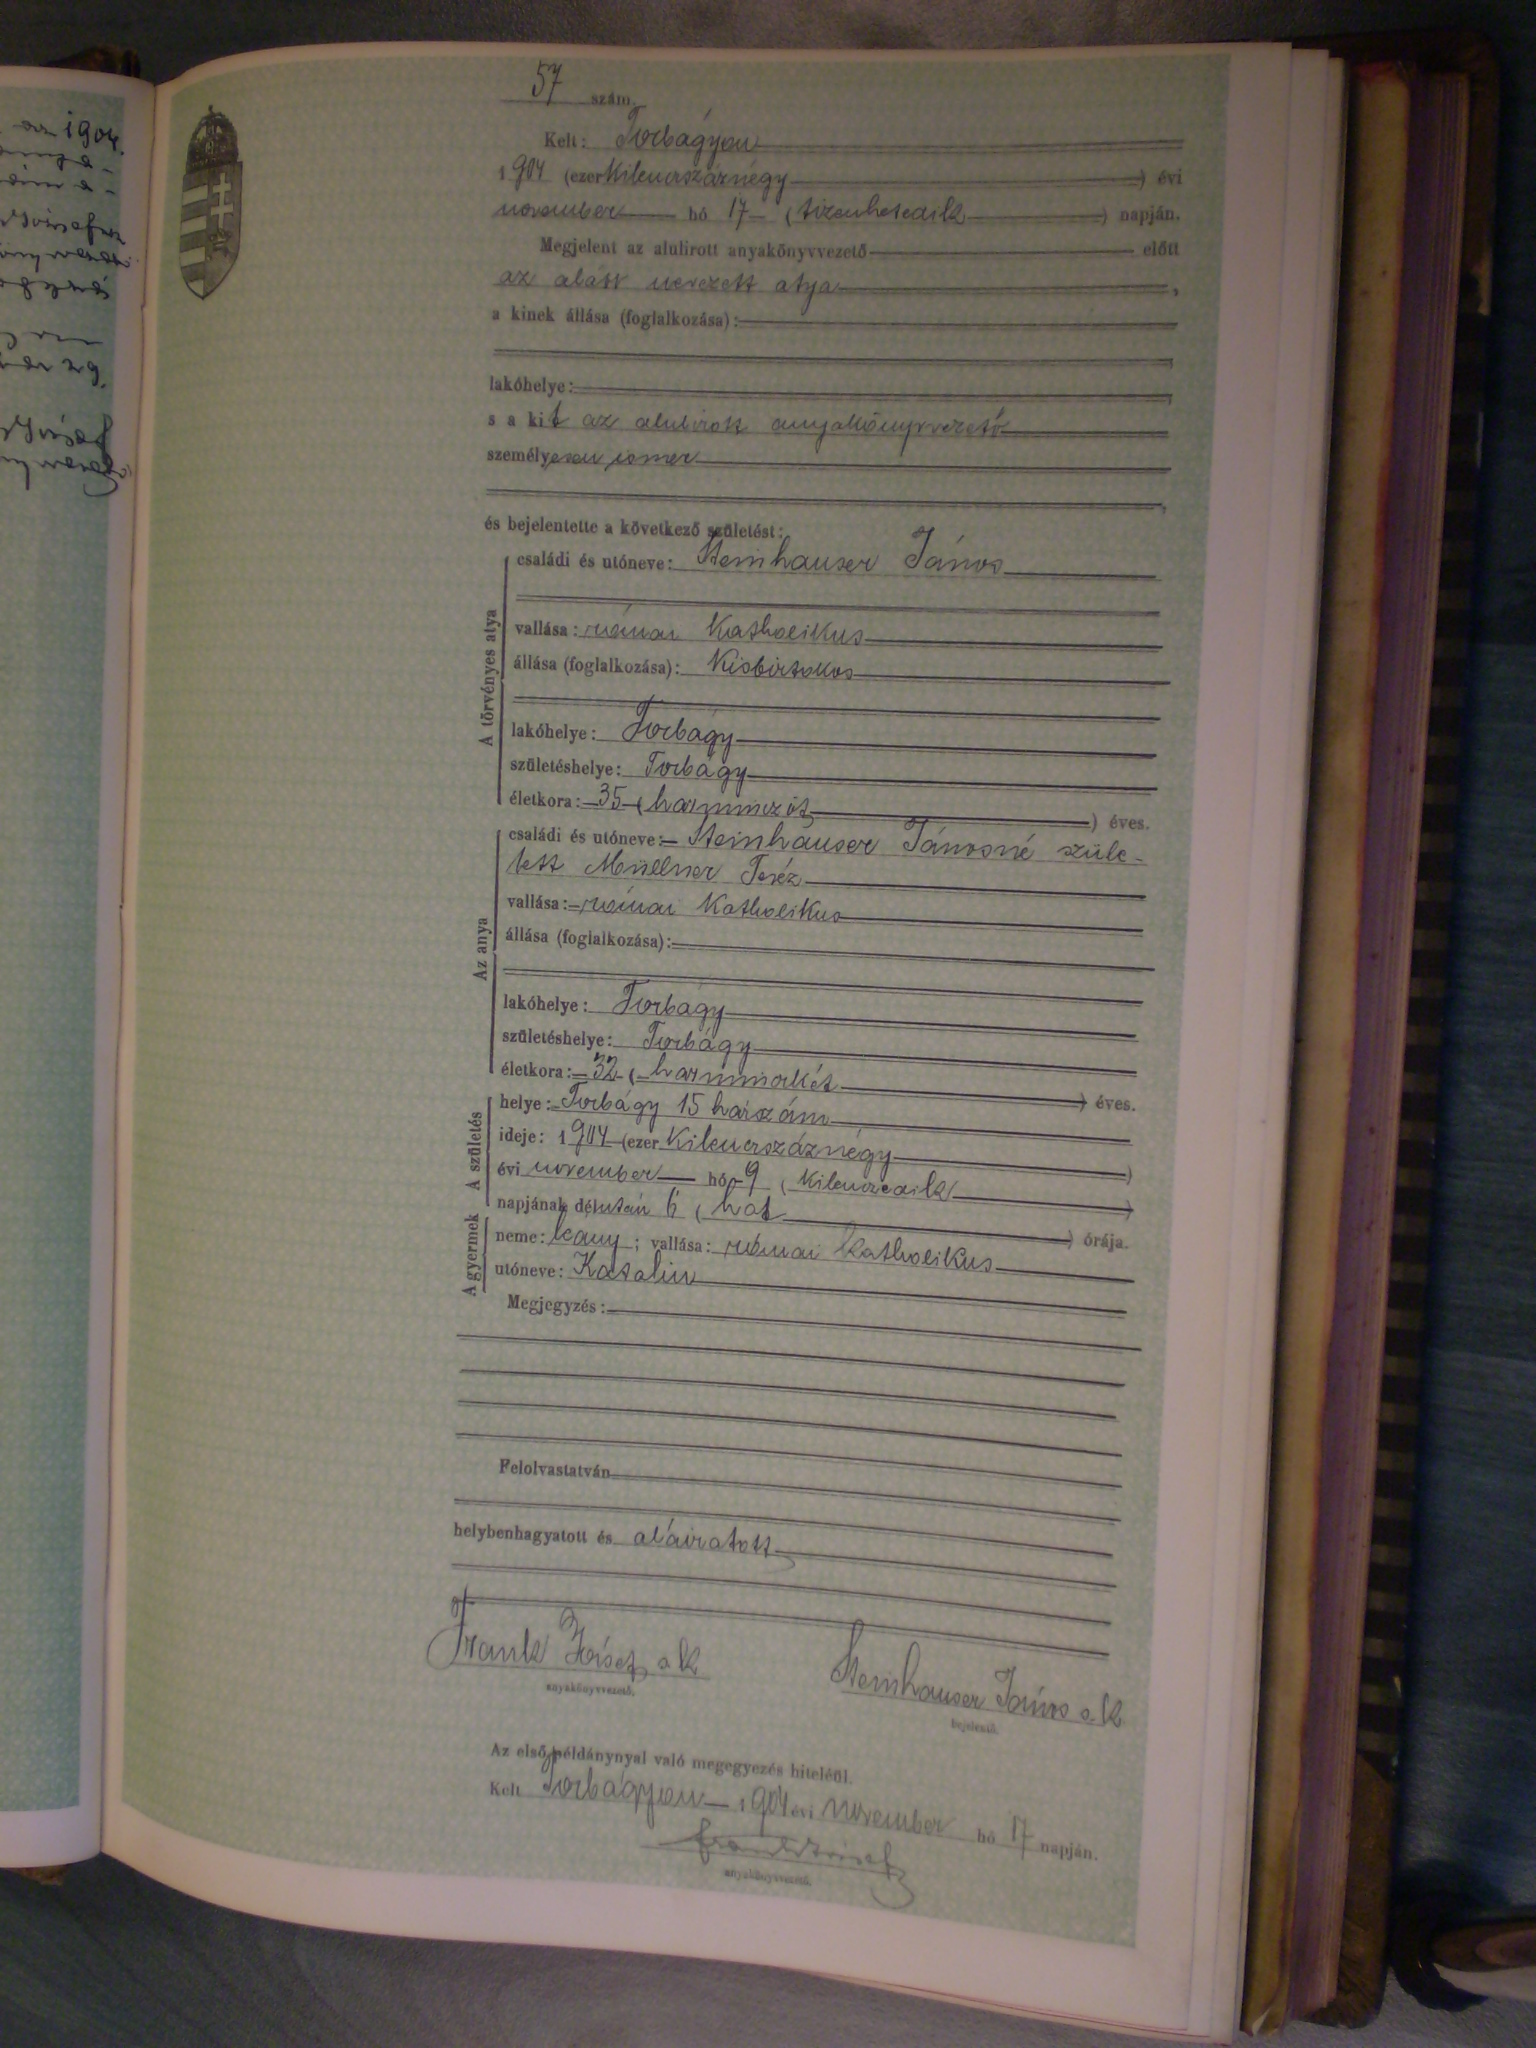 az 1904.
29.
57 szám.
Kelt: Torbágyon
1904 (ezer kilencszáznégy) évi
november hó 17 (tizenhetedik) napján.
Megjelent az alulirott anyakönyvvezető előtt
az alább nevezett atya,
a kinek állása (foglalkozása):
lakóhelye:
s a kit az alulirott anyakönyvvezető
személyesen ismer
és bejelentette a következő születést:
A törvényes atya
családi és utóneve: Steinhauser János
vallása: római katholikus
állása (foglalkozása): kisbirtokos
lakóhelye: Torbágy
születéshelye: Torbágy
életkora: 35 (harmincöt) éves.
Az anya
családi és utóneve: Steinhauser Jánosné szüle-
tett Müllner Teréz
vallása: római katholikus
állása (foglalkozása):
lakóhelye: Torbágy
születéshelye: Torbágy
életkora: 32 (harminckét) éves.
A születés
helye: Torbágy 15 házszám
ideje: 1904 (ezer kilencszáznégy)
évi november hó 9 (kilencedik)
napjának délután 6 (hat) órája.
A gyermek
neme: leány; vallása: római katholikus
utóneve: Katalin
Megjegyzés:
Felolvastatván
helybenhagyatott és aláiratott
Frank József s k Steinhauser János s. k
anyakönyvvezető. bejelentő.
Az első példánynyal való megegyezés hiteléül.
Kelt Torbágyon 1904 évi november hó 17 napján.
Frank József
anyakönyvvezető.